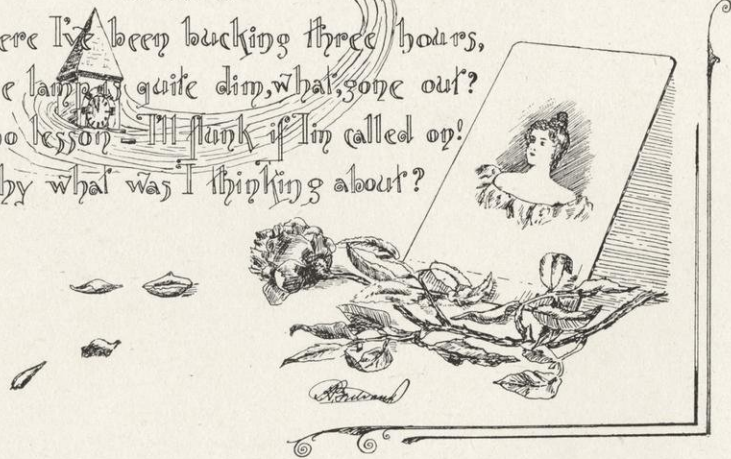 ere I've been bucking three hours,
e lamp is quite dim, what, gone out?
no lesson – I'll flunk if I'm called on!
hy what was I thinking about?